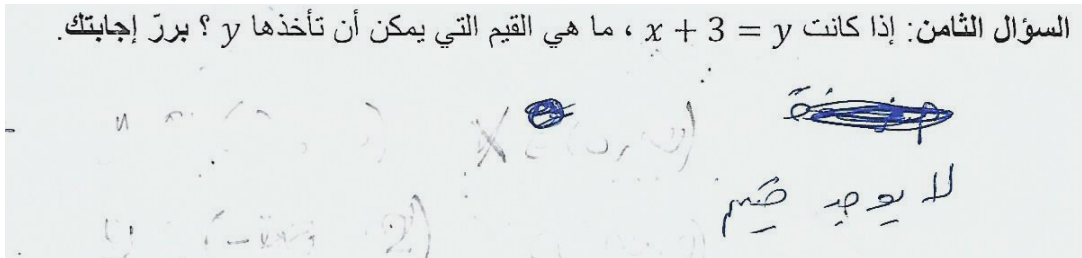 السؤال الثامن: إذا كانت x + 3 = y ، ما هي القيم التي يمكن أن تأخذها y ؟ برّر إجابتك.
لا يوجد قيم